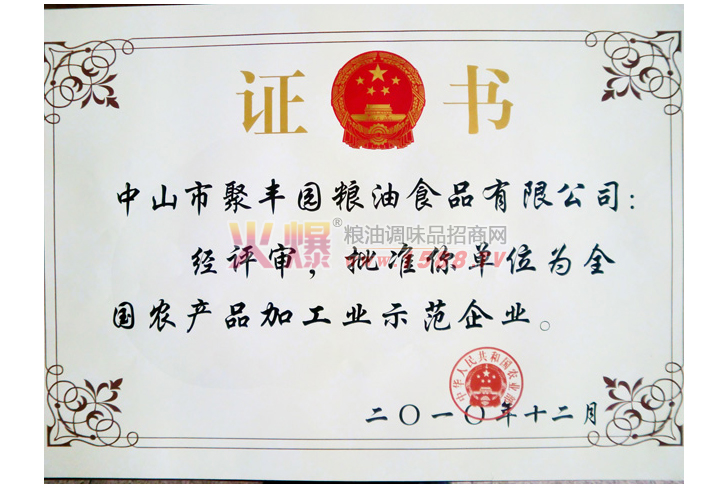 证书
中山市聚丰园粮油食品有限公司：
火爆®粮油调味品招商网
经评审，批准你单位为全
国农产品加工业示范企业。
中华人民共和国农业部
二〇一〇年十二月